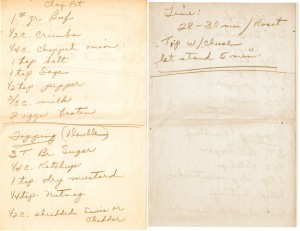 Clay Pot
1# gr. Beef
1/2 c. Crumbs
1/4 c. Chopped onion
1 tsp salt
1 tsp Sage
1/2 tsp pepper
2/3 c. milk
2 eggs beaten
Topping (Double)
3 T Br. Sugar
1/4 c. Ketchup
1 tsp. dry mustard
1/4 tsp. Nutmeg
1/2 c. shredded Swiss or
Cheddar
Time:
28-30 min / Roast
Top w/ Cheese
let stand 5 min